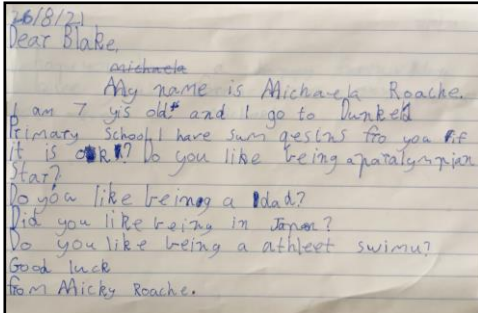 26/8/21
Dear Blake,
michaela
My name is Michaela Roache.
I am 7 yis old and I go to Dunkeld
Primary school I have sum qestns fro you if
it is ok? Do you like being a paralympian
Star?
Do you like being a dad?
Did you like being in Japan?
Do you like being a athleet swimu?
Good luck
from Micky Roache.